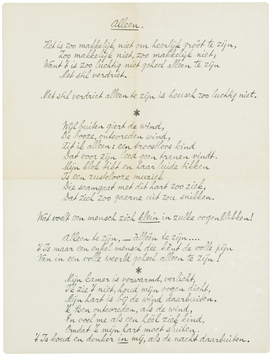 Alleen.
Het is zoo makkelijk niet om heerlijk groot te zijn,
Zoo makkelijk niet, zoo makkelijk niet,
Want 't is zoo luchtig niet geheel alleen te zijn
Met stil verdriet.
Met stil verdriet alleen te zijn is heusch zoo luchtig niet.
*
Wijl buiten giert de wind,
De booze, ontevreden wind,
Zit ik alleen: een troosteloos kind
Dat voor zijn leed geen tranen vindt.
Mijn klok tikt en haar luide tikken
Is een rustelooze muziek
Die samengaat met dit hart zoo ziek,
Dat zich zoo gaarne uit zou snikken.
Wat voelt een mensch zich klein in zulke oogenblikken!
Alleen te zijn, — Alleen te zijn....
't Is maar een enkel mensch die kent de volle pijn
Van in een volle wereld geheel alleen te zijn!
*
Mijn kamer is verwarmd, verlicht,
'k Zie 't niet, houd mijn oogen dicht,
Mijn hart is bij de wind daarbuiten.
'k Ben ontevreden, als de wind,
En voel me als een heel ziek kind,
Omdat 'k mijn hart moet sluiten.
't Is koud en donker in mij, als de nacht daarbuiten.